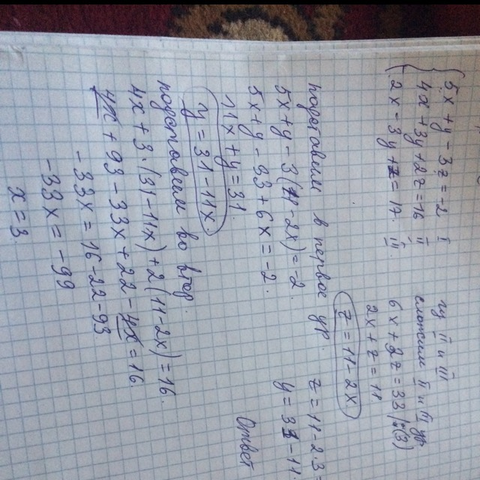 5x + y - 3z = -2 I
4x + 3y + 2z = 16 II
2x - 3y + z = 17 III
из II и III
сложим II и III ур
6x + 3z = 33 |:(3)
2x + z = 11
z = 11 - 2x
подставим в первое ур.
5x + y - 3(11 - 2x) = -2
5x + y - 33 + 6x = -2
11x + y = 31
y = 31 - 11x
подставим во втор.
4x + 3·(31 - 11x) + 2(11 - 2x) = 16
4x + 93 - 33x + 22 - 4x = 16
-33x = 16 - 22 - 93
-33x = -99
x = 3
z = 11 - 2·3 =
y = 31 - 11·
Ответ